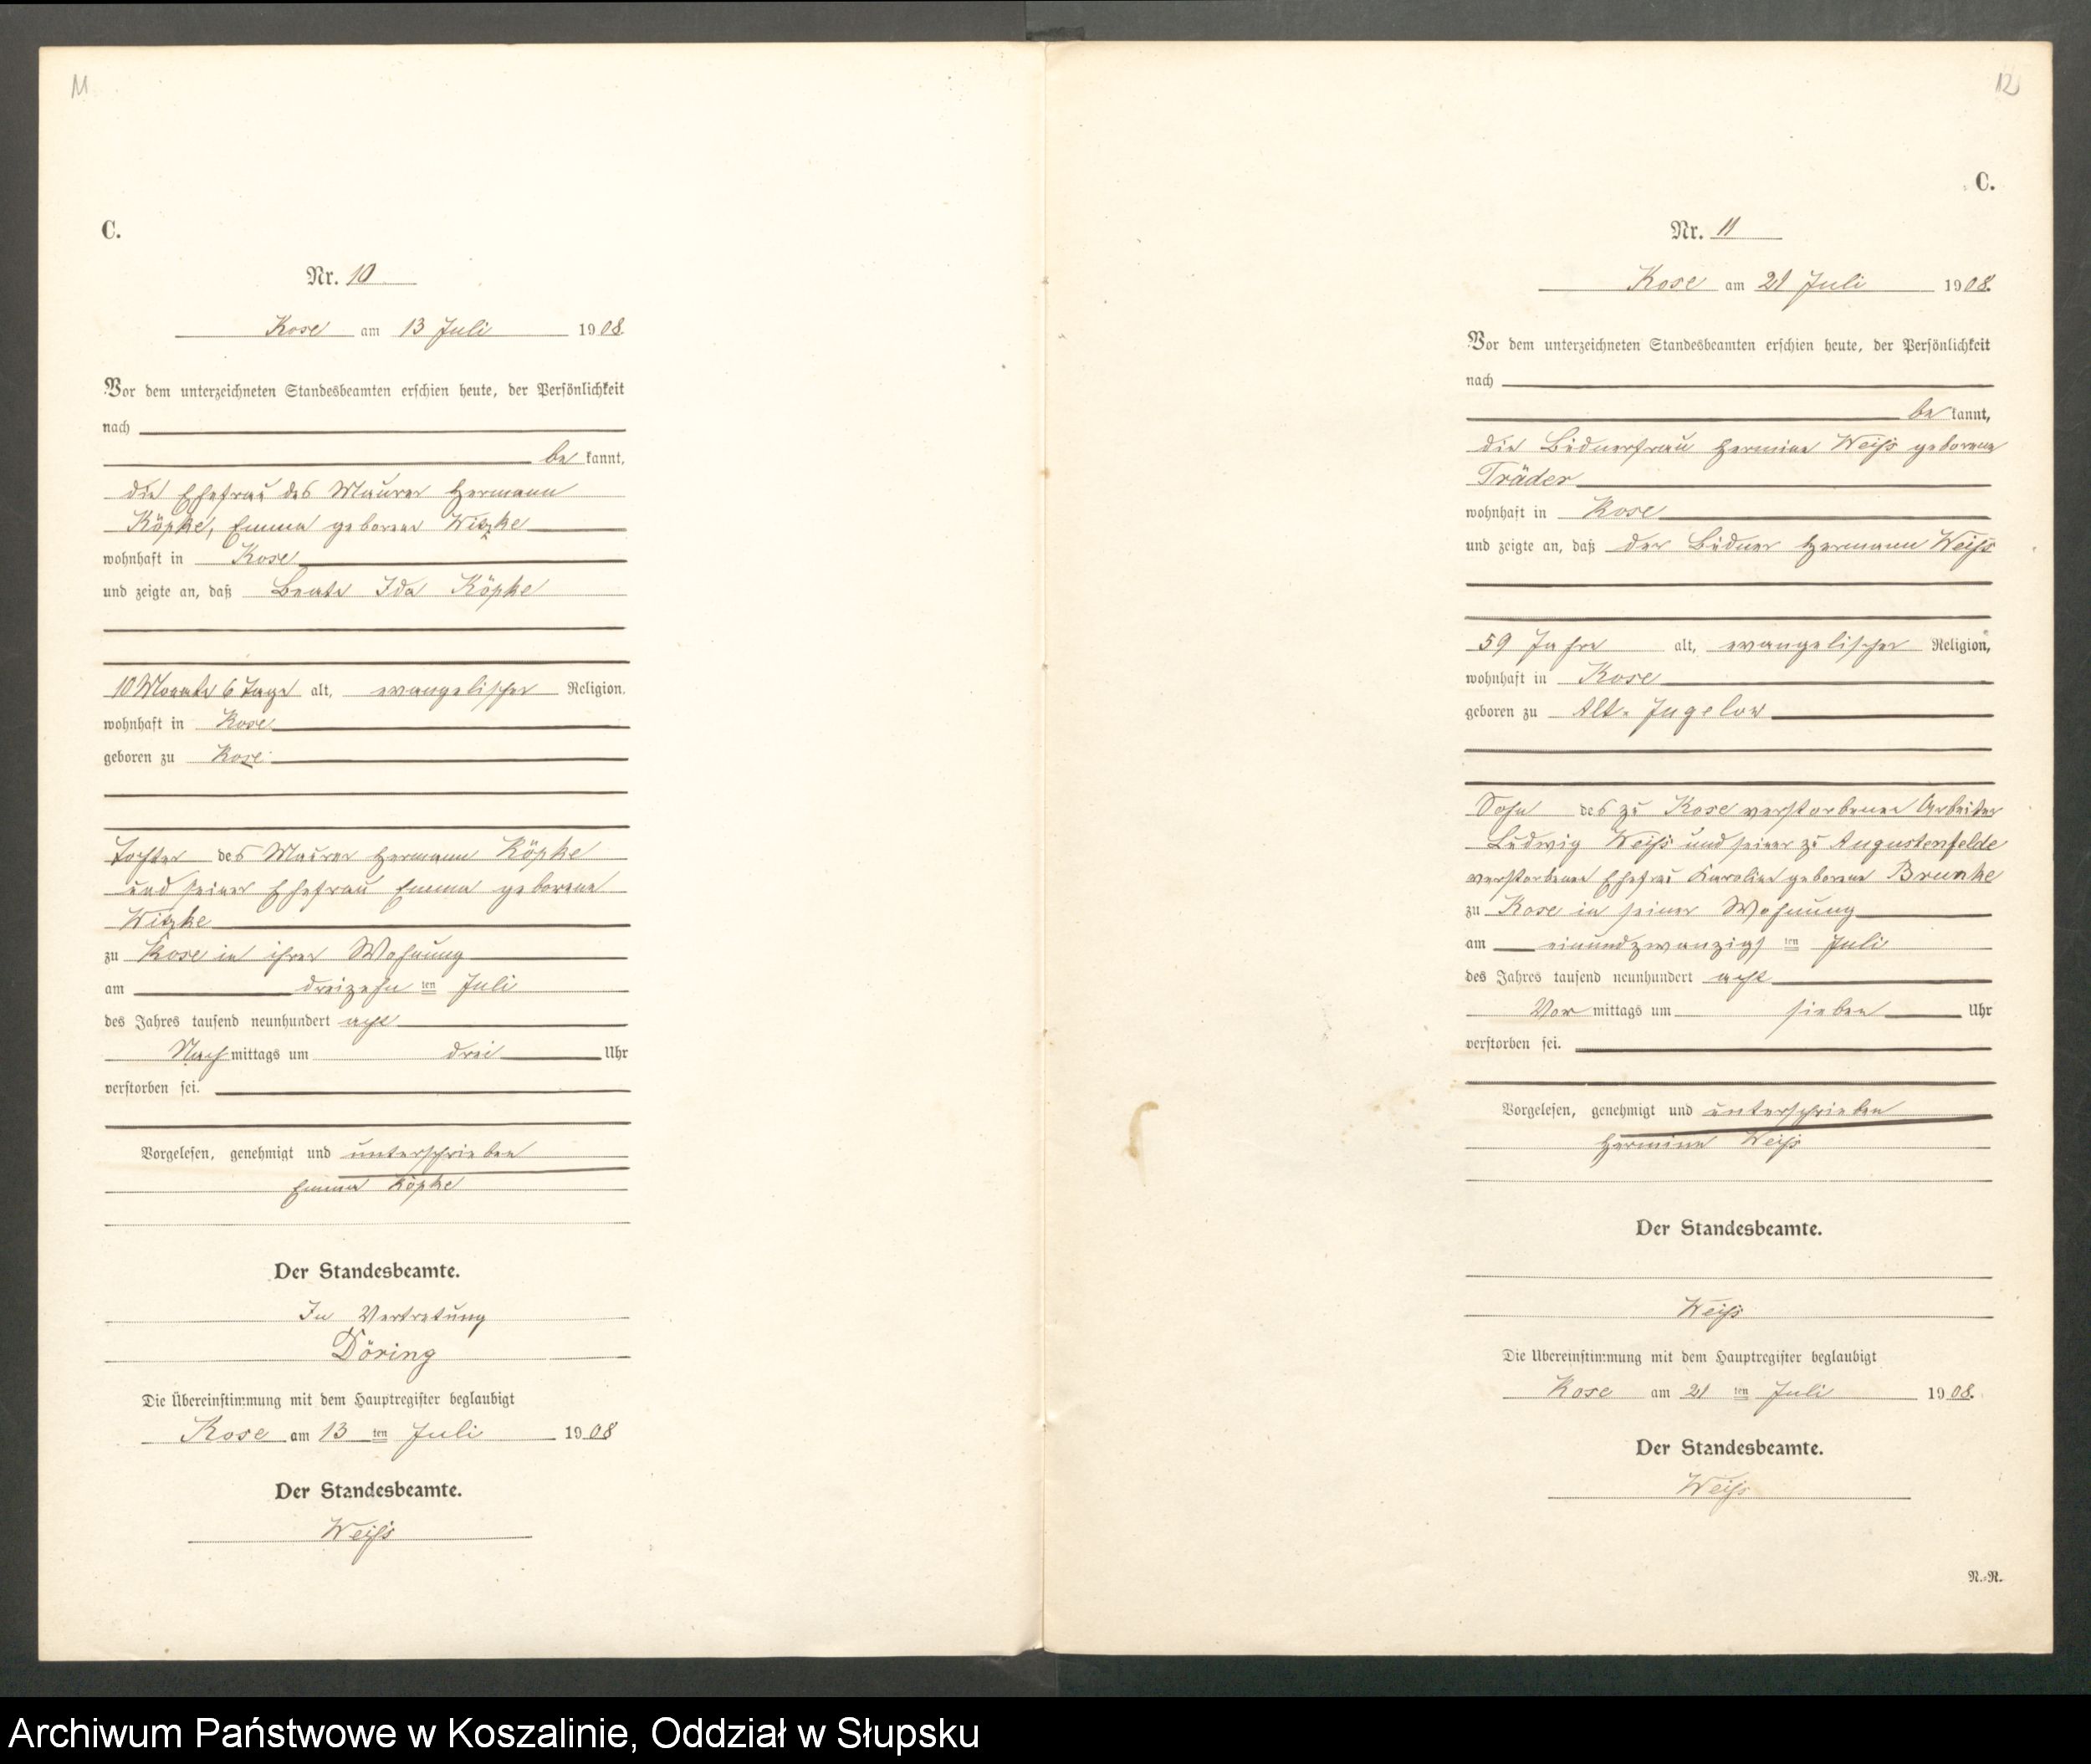 11
C.
Nr. 10
Kose am 13 Juli 1908
Vor dem unterzeichneten Standesbeamten erschien heute, der Persönlichkeit
nach
be kannt,
die Ehefrau des Maurer Hermann
Köpke, Emma geborene Witzke
wohnhaft in Kose
und zeigte an, daß Beate Ida Köpke
10 Monate 6 Tage alt, evangelischer Religion,
wohnhaft in Kose
geboren zu Kose
Tochter des Maurer Hermann Köpke
und seiner Ehefrau Emma geborene
Witzke
zu Kose in ihrer Wohnung
am dreizehn ten Juli
des Jahres tausend neunhundert acht
Nach mittags um drei Uhr
verstorben sei.
Vorgelesen, genehmigt und unterschrieben
Emma Köpke
Der Standesbeamte.
In Vertretung
Döring
Die Übereinstimmung mit dem Hauptregister beglaubigt
Kose am 13 ten Juli 1908
Der Standesbeamte.
Weiß
12
C.
Nr. 11
Kose am 21 Juli 1908.
Vor dem unterzeichneten Standesbeamten erschien heute, der Persönlichkeit
nach
be kannt,
die Büdnerfrau Hermine Weiß geborene
Träder
wohnhaft in Kose
und zeigte an, daß der Büdner Hermann Weiß
59 Jahre alt, evangelischer Religion,
wohnhaft in Kose
geboren zu Alt-Jugelow
Sohn des zu Kose verstorbenen Arbeiter
Ludwig Weiß und seiner zu Augustenfelde
verstorbenen Ehefrau Karoline geborene Brunke
zu Kose in seiner Wohnung
am einundzwanzigs ten Juli
des Jahres tausend neunhundert acht
Vor mittags um sieben Uhr
verstorben sei.
Vorgelesen, genehmigt und unterschrieben
Hermine Weiß
Der Standesbeamte.
Weiß
Die Übereinstimmung mit dem Hauptregister beglaubigt
Kose am 21 ten Juli 1908.
Der Standesbeamte.
Weiß
N.-N.
Archiwum Państwowe w Koszalinie, Oddział w Słupsku